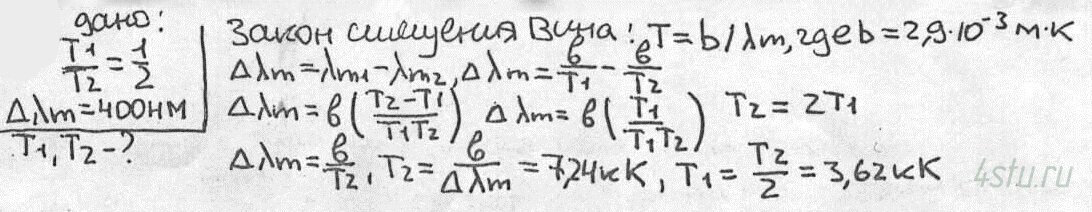 дано:
T1/T2 = 1/2
Δλm = 400нм
T1, T2 - ?
Закон смещения Вина: T = b/λm, где b = 2,9·10⁻³ м·К
Δλm = λm1 - λm2, Δλm = в/T1 - в/T2
Δλm = в((T2-T1)/(T1T2)) Δλm = в(T1/(T1T2)) T2 = 2T1
Δλm = в/T2, T2 = в/Δλm = 7,24кК, T1 = T2/2 = 3,62кК
4stu.ru